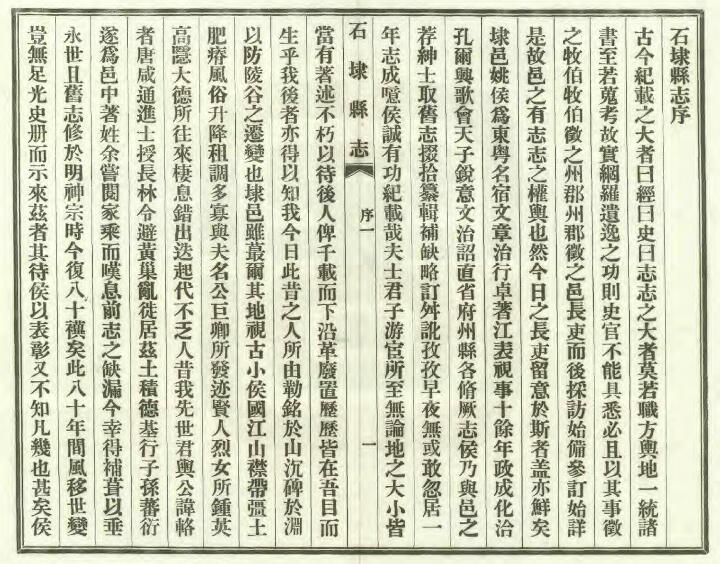 石埭縣志序
古今紀載之大者曰經曰史曰志志之大者莫若職方輿地一統諸
書至若蒐考故實綱羅遺逸之功則史官不能具悉必且以其事徵
之牧伯牧伯徵之州郡州郡徵之邑長吏而後採訪始備參訂始詳
是故邑之有志志之權輿也然今日之長吏留意於斯者盖亦鮮矣
埭邑姚侯爲東粵名宿文章治行卓著江表視事十餘年政成化洽
孔爾興歌會天子銳意文治詔直省府州縣各脩厥志侯乃與邑之
荐紳士取舊志掇拾纂輯補缺略訂舛訛孜孜早夜無或敢忽居一
年志成噫侯誠有功紀載哉夫士君子游宦所至無論地之大小皆
石埭縣志
序一
一
當有著述不朽以待後人俾千載而下沿革廢置歷歷皆在吾目而
生乎我後者亦得以知我今日此昔之人所由勒銘於山沉碑於淵
以防陵谷之遷變也埭邑雖蕞爾其地視古小侯國江山襟帶彊土
肥瘠風俗升降租調多寡與夫名公巨卿所發迹賢人烈女所鍾英
高隱大德所往來棲息錯出迭起代不乏人昔我先世君輿公諱輅
者唐咸通進士授長林令避黃巢亂徙居茲土積德基行子孫蕃衍
遂爲邑中著姓余嘗閱家乘而嘆息前志之缺漏今幸得補葺以垂
永世且舊志修於明神宗時今復八十禩矣此八十年間風移世變
豈無足光史册而示來茲者其待侯以表彰又不知凡幾也甚矣侯